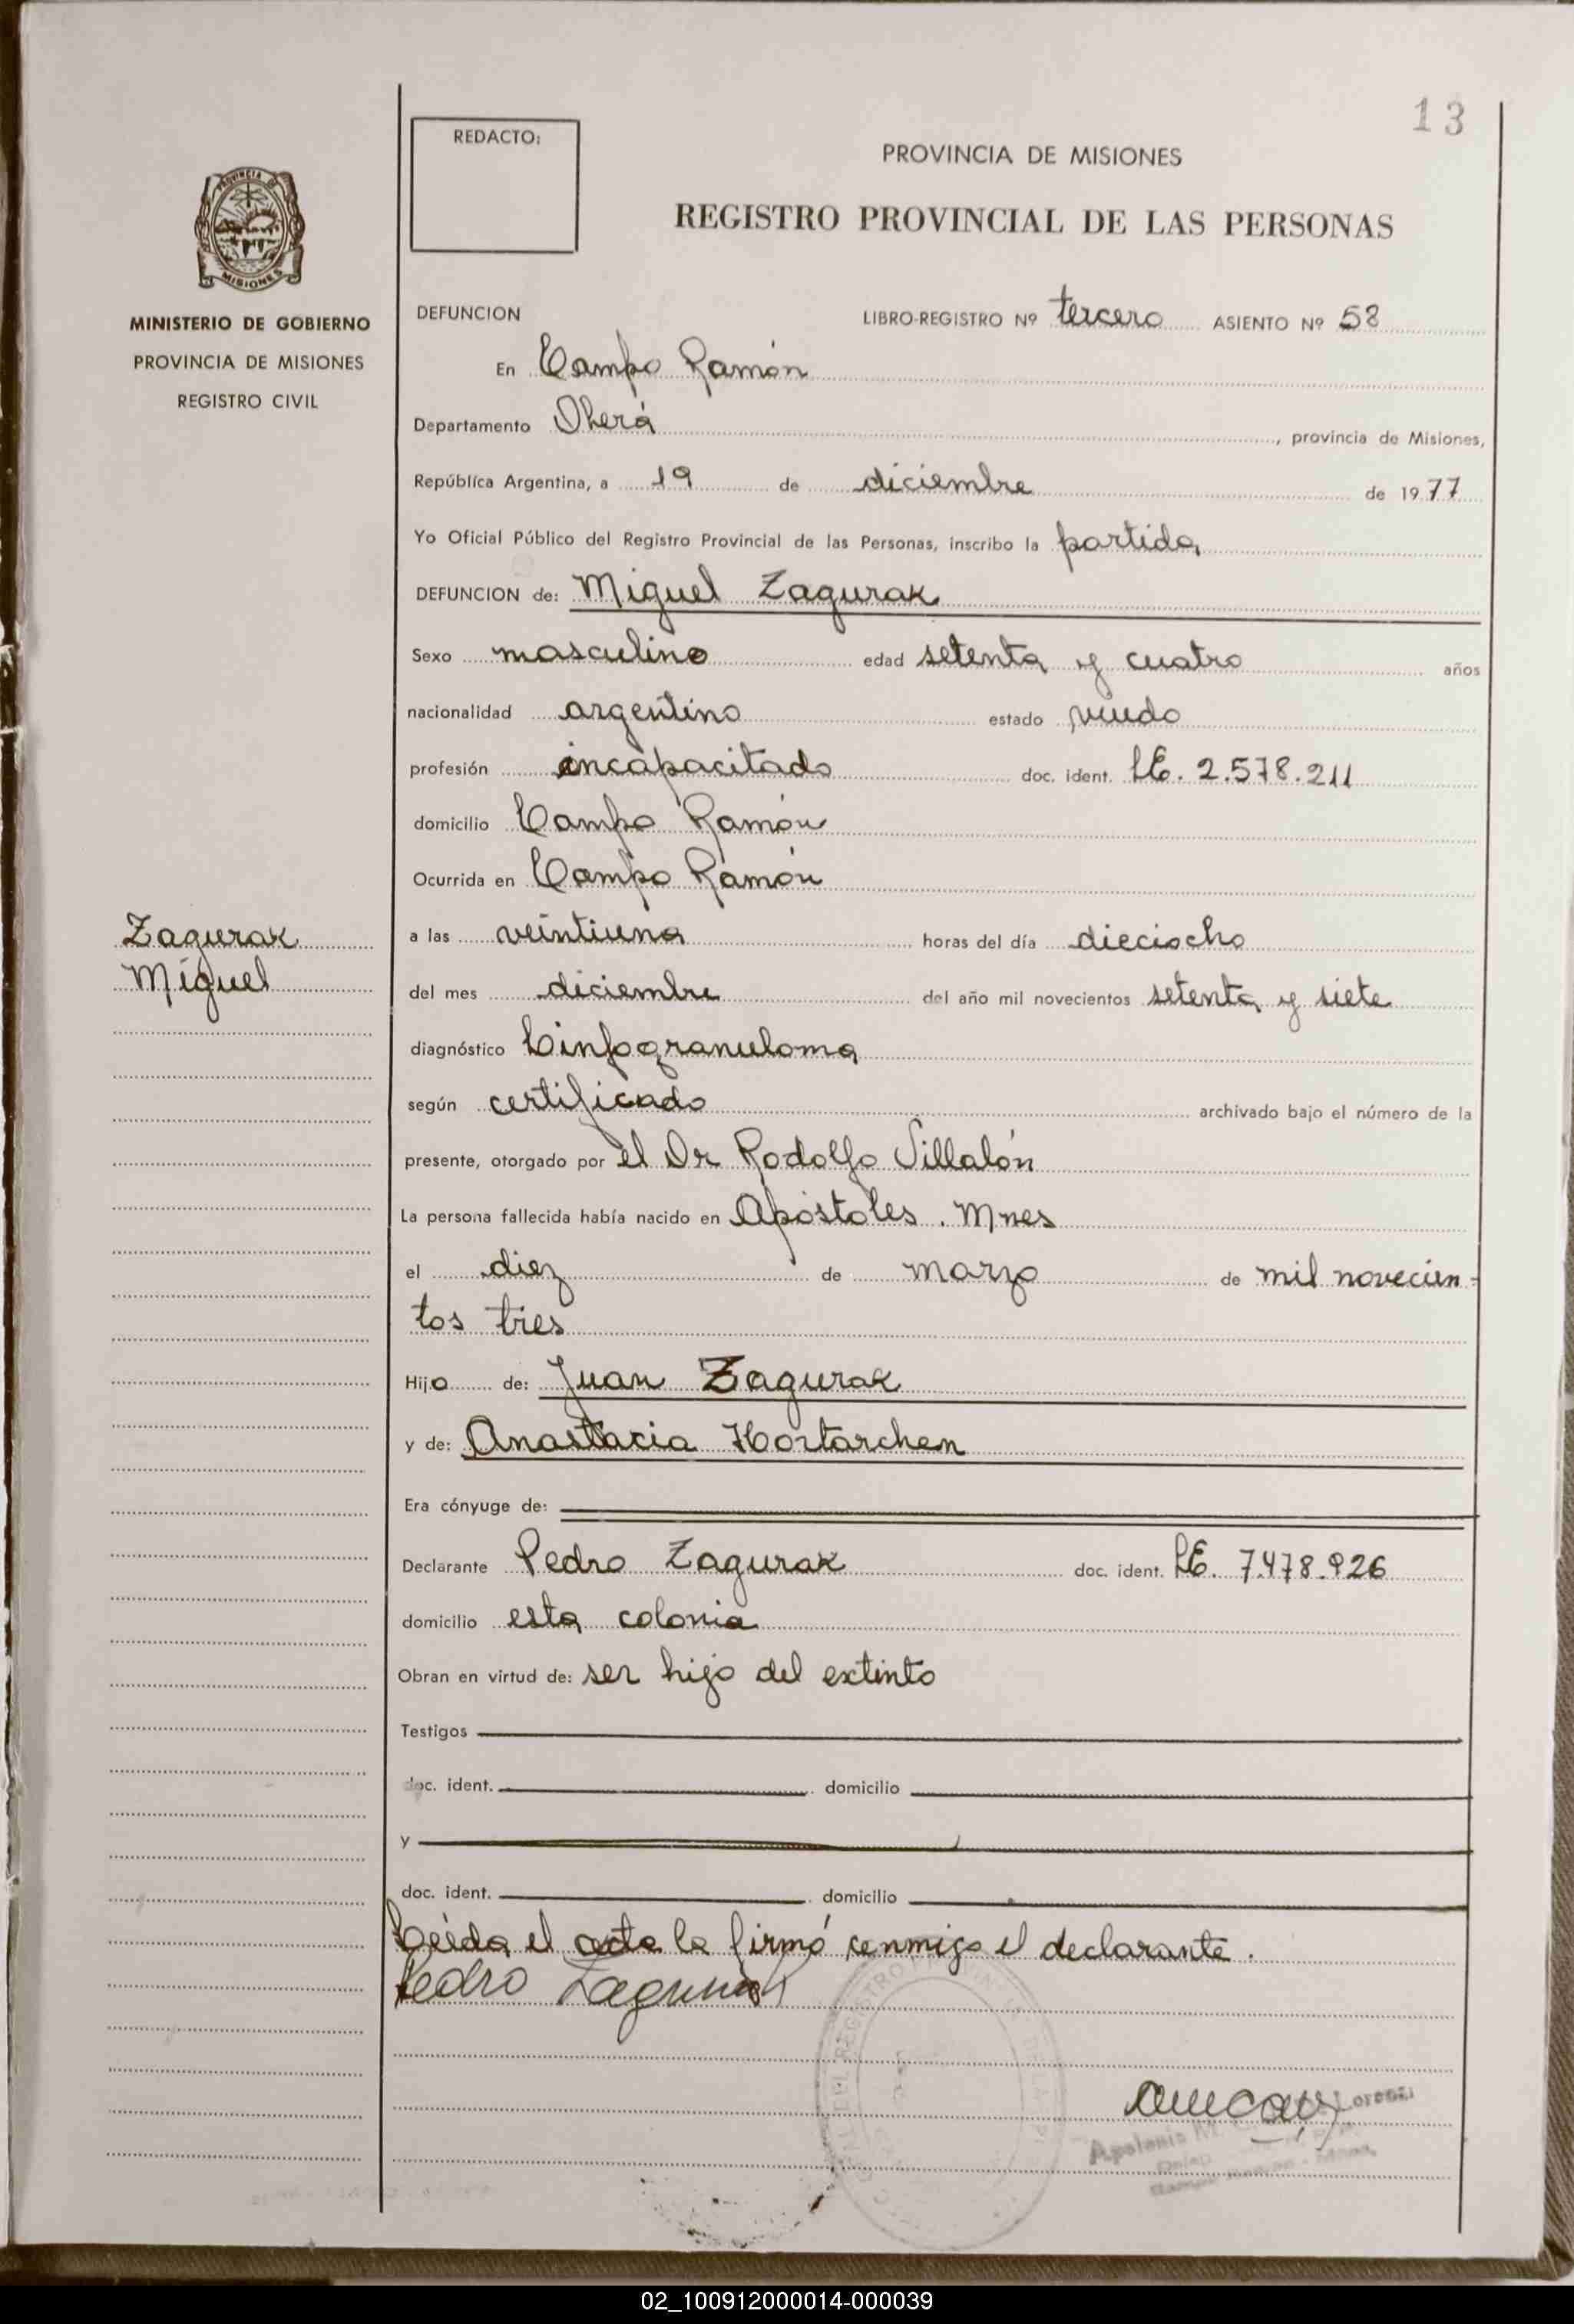 13
REDACTO:
PROVINCIA DE MISIONES
REGISTRO PROVINCIAL DE LAS PERSONAS
PROVINCIA DE
MISIONES
MINISTERIO DE GOBIERNO
PROVINCIA DE MISIONES
REGISTRO CIVIL
DEFUNCION LIBRO-REGISTRO Nº tercero ASIENTO Nº 58
En Campo Ramón
Departamento Oberá, provincia de Misiones,
República Argentina, a 19 de diciembre de 1977
Yo Oficial Público del Registro Provincial de las Personas, inscribo la partida
DEFUNCION de: Miguel Zagurak
Sexo masculino edad setenta y cuatro años
nacionalidad argentino estado viudo
profesión incapacitado doc. ident. LE. 2.578.211
domicilio Campo Ramón
Ocurrida en Campo Ramón
Zagurak
Miguel
a las veintiuna horas del día dieciocho
del mes diciembre del año mil novecientos setenta y siete
diagnóstico Linfogranuloma
según certificado archivado bajo el número de la
presente, otorgado por el Dr Rodolfo Villalón
La persona fallecida había nacido en Apóstoles. Mnes
el diez de marzo de mil novecien-
tos tres
Hijo de: Juan Zagurak
y de: Anastacia Hortarchen
Era cónyuge de:
Declarante Pedro Zagurak doc. ident. LE. 7.478.926
domicilio esta colonia
Obran en virtud de: ser hijo del extinto
Testigos
doc. ident. domicilio
y
doc. ident. domicilio
Leída el acta la firmó conmigo el declarante.
Pedro Zagurak
Apolonia M.
02_100912000014-000039